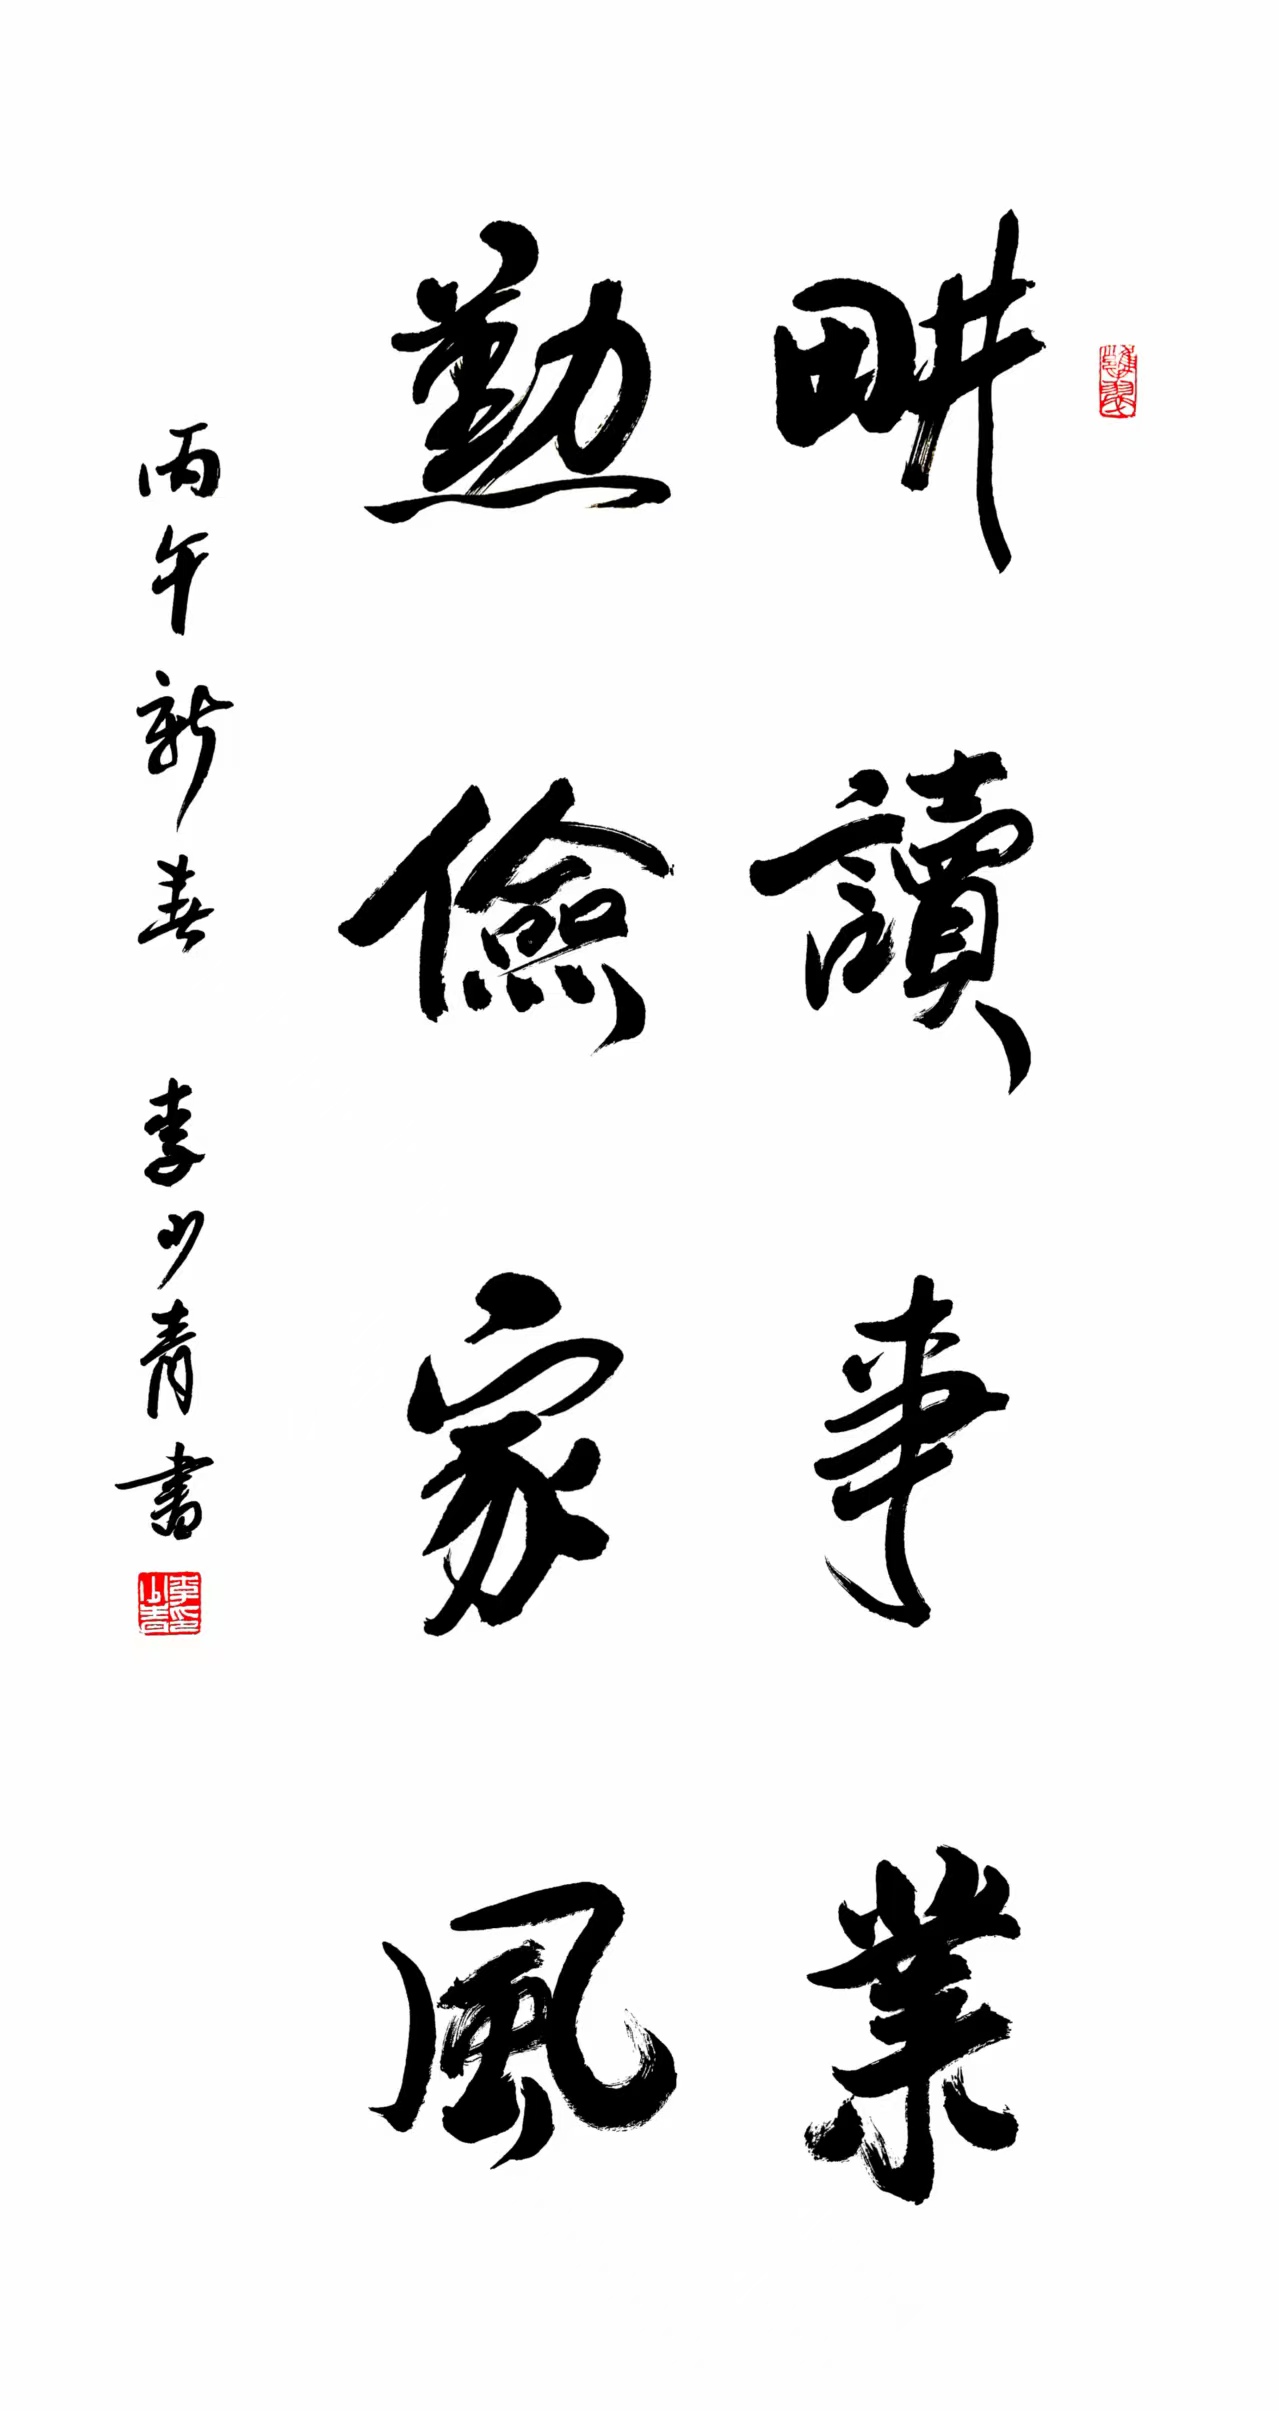 畊讀事業
勤儉家風
丙午新春 李少青書
李印少青